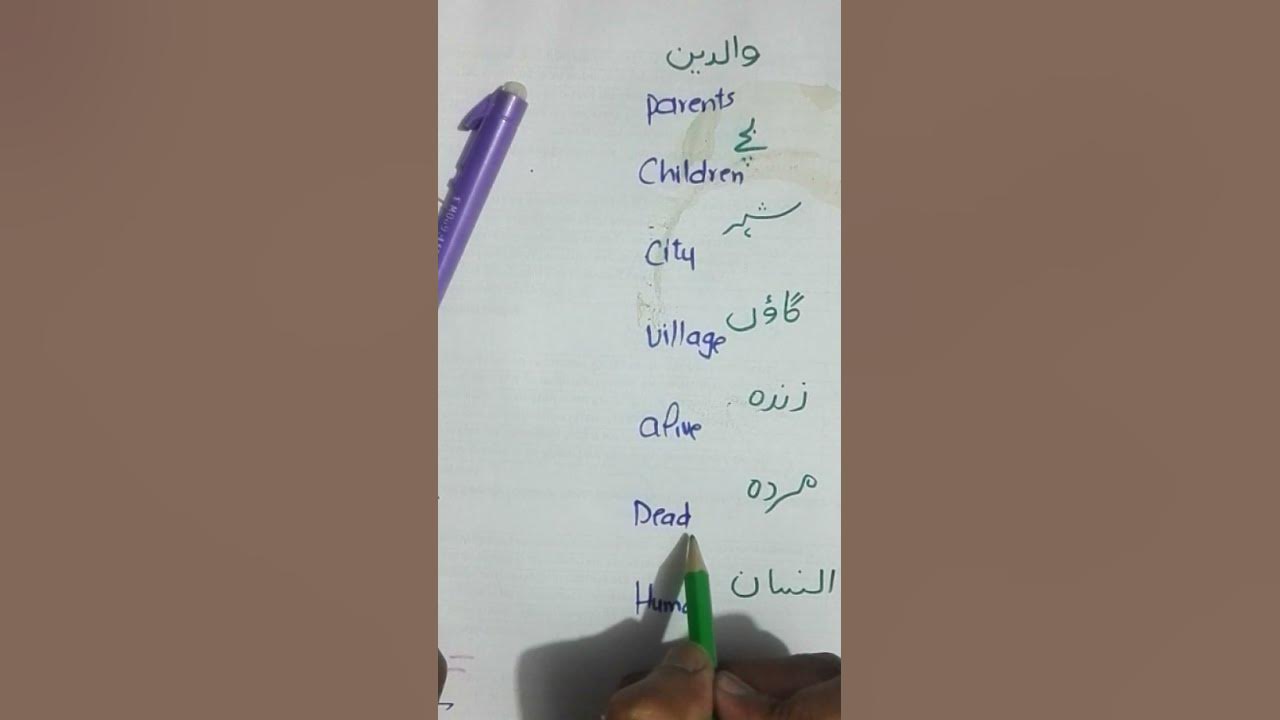 والدین
parents
بچے
Children
شہر
City
گاؤں
village
زندہ
alive
مردہ
Dead
النسان